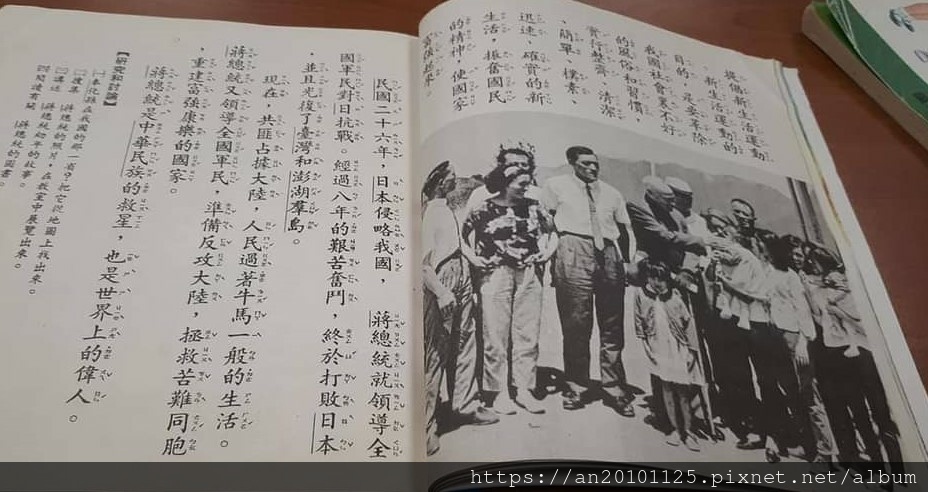 提倡新生活運動
。新生活運動的
目的,是要革除
我國社會裏不好
的風俗和習慣,
實行整齊、清潔
、簡單、樸素、
迅速、確實的新
生活,振奮國民
的精神,使國家
富強起來。
民國二十六年,日本侵略我國, 蔣總統就領導全
國軍民對日抗戰。經過八年的艱苦奮鬥,終於打敗日本
,並且光復了臺灣和澎湖羣島。
現在,共匪占據大陸,人民過著牛馬一般的生活。
蔣總統又領導全國軍民,準備反攻大陸,拯救苦難同胞
,重建富強康樂的國家。
蔣總統是中華民族的救星,也是世界上的偉人。
【研究和討論】
㈠奉化縣在我國的那一省?把它從地圖上找出來。
㈡搜集 蔣總統的照片,在教室中展覽出來。
㈢講述 蔣總統幼年的故事。
㈣閱讀有關 蔣總統的圖書。
https://an20101125.pixnet.net/album